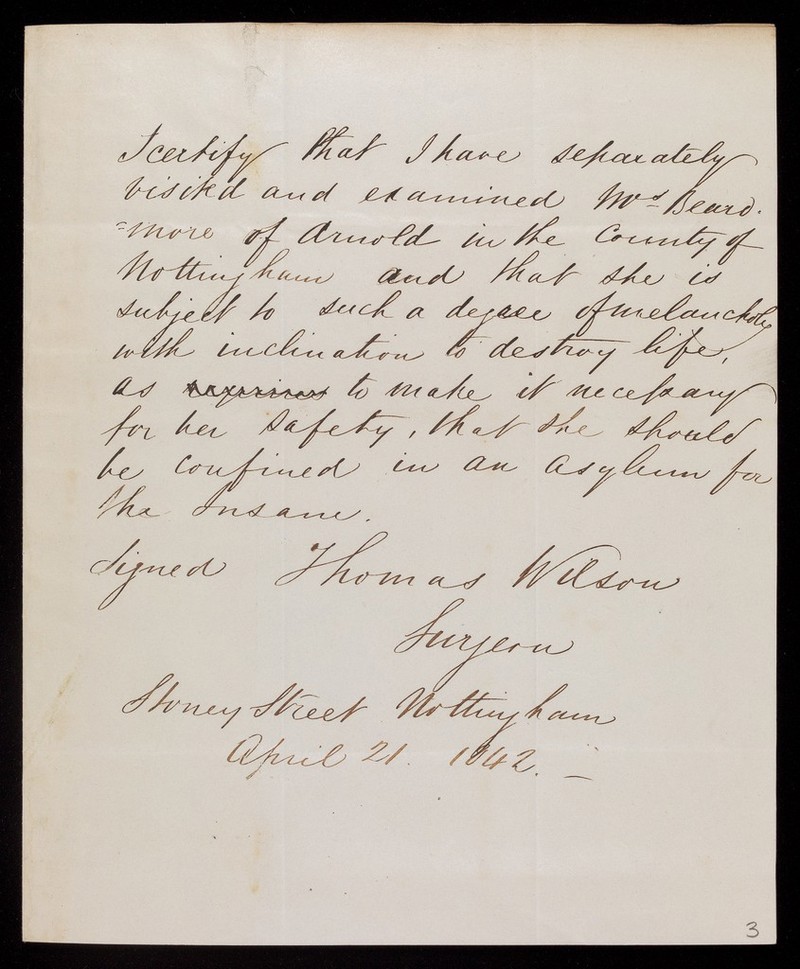 I certify that I have separately
visited and examined Mrs Beard-
=more of Arnold in the County of
Nottingham and that she is
subject to such a degree of melancholy
with inclination to destroy life,
as requires to make it necessary
for her safety, that she should
be confined in an asylum for
the Insane.
Signed Thomas Wilson
Surgeon
Stoney Street Nottingham
April 21. 1842. –
3